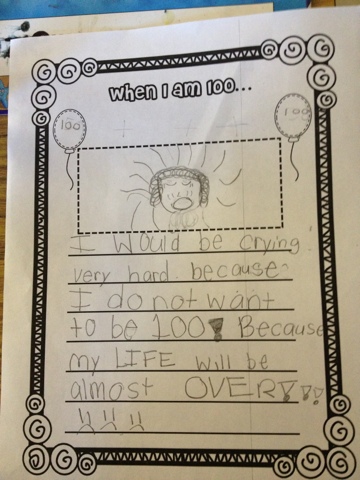 When I am 100...
100
100
I Would be crying
very hard. because
I do not want
to be 100! Because
my LIFE will be
almost OVER!!!